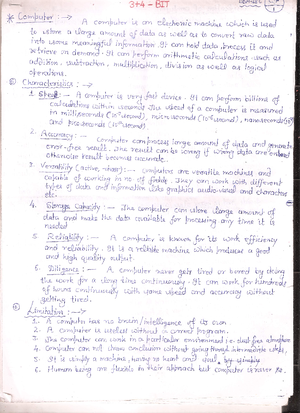 3+4 - BIT
* Computer : →
A computer is an electronic machine which is used
to store a large amount of data as well as to convert raw data
into some meaningful information. It can hold data process it and
retrieve on demand. It can perform arithmetic calculations such as
addition, subtraction, multiplication, division as well as logical
operations.
Characteristics : →
1. Speed :- A computer is very fast device. It can perform billions of
calculations within seconds. The speed of a computer is measured
in milliseconds
and picoseconds
2. Accuracy :- Computer can process large amount of data and generate
error-free result. The result can be wrong if wrong data are entered
otherwise result becomes accurate.
3. Versatility :- Computers are versatile machines and
capable of working in no of fields. They can work with different
types of data and information like graphics audio visual and characters
etc.
4. Storage Capacity :- The computer can store large amount of
data and make the data available for processing any time it is
needed
5. Reliability :- A computer is known for its work efficiency
and reliability. It is a reliable machine which produces a good
and high quality output.
6. Diligence :- A computer never gets tired or bored by doing
the work for a long time continuously. It can work for hundreds
of hours continuously with same speed and accuracy without
getting tired.
Limitation : →
1. A computer has no brain/intelligence of its own
2. A computer is useless without a correct program.
3. The computer can work in a particular environment i.e. dust free atmosphere
4. Computer can not draw conclusion without going through intermediate steps.
5. It is simply a machine, having no heart and soul,
6. Human being are flexible to their approach but computer is never so.